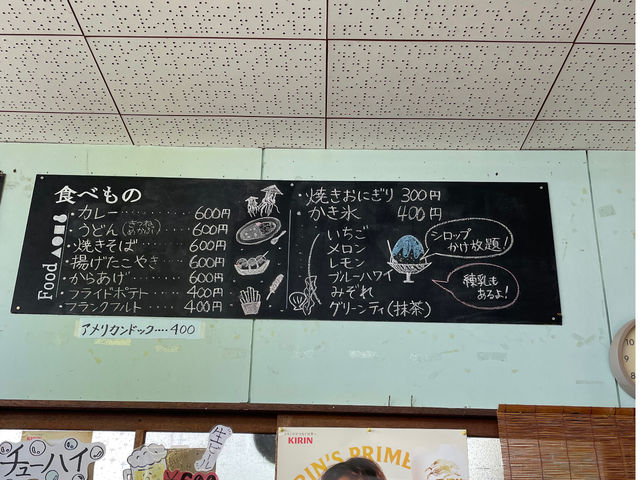 食べもの
Food
・カレー・・・・・・・・600円
・うどん(きつね わかめ)・・・600円
・焼きそば・・・・・・600円
・揚げたこやき・・・600円
・からあげ・・・・・・600円
・フライドポテト・・・400円
・フランクフルト・・・400円
アメリカンドック‥‥400
・焼きおにぎり 300円
・かき氷 400円
いちご
メロン
レモン
ブルーハワイ
みぞれ
グリーンティ(抹茶)
シロップ
かけ放題!
練乳も
あるよ!
10
9
8
チューハイ
生ビール
KIRIN
RIN'S PRIME